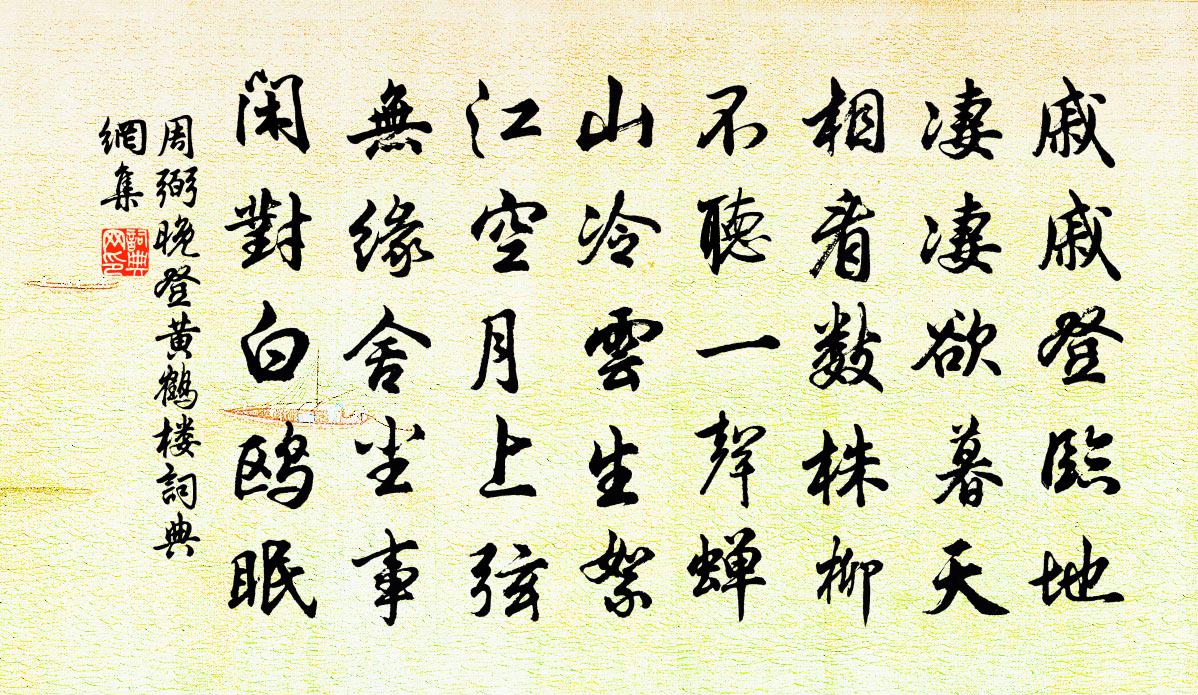 戚戚登臨地
凄凄欲暮天
相看數株柳
不聽一聲蟬
山冷雲生絮
江空月上弦
無緣舍塵事
閑對白鷗眠
周弼晚登黃鶴樓詞典
網集
詞典
网印